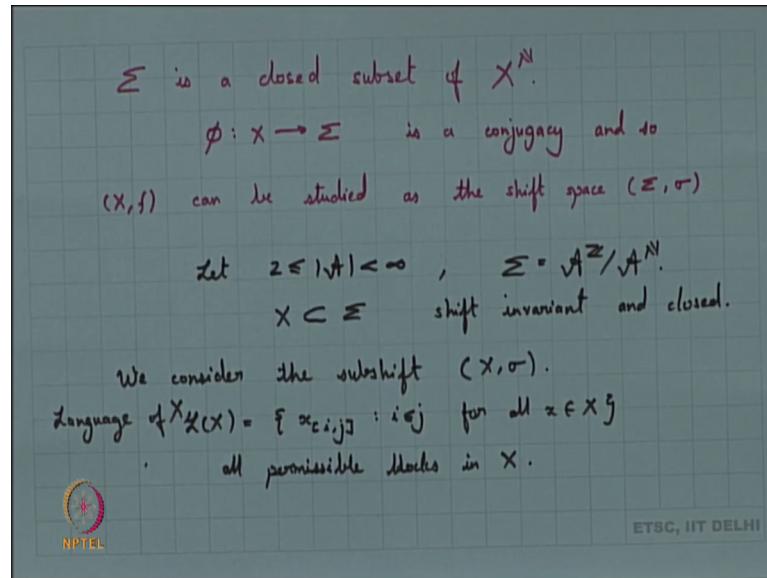 Σ is a closed subset of X^ℕ.
φ : X → Σ is a conjugacy and so
(X, f) can be studied as the shift space (Σ, σ)
Let 2 ≤ |A| < ∞ , Σ = A^ℤ / A^ℕ.
X ⊂ Σ shift invariant and closed.
We consider the subshift (X, σ).
Language of X ℒ(X) = { x_[i,j] : i ≤ j for all x ∈ X }
all permissible blocks in X.
NPTEL
ETSC, IIT DELHI